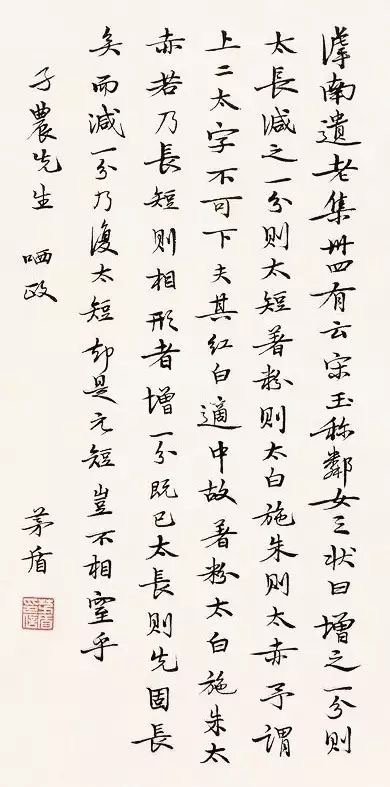 滹南遺老集卅四有云宋玉称鄰女之状曰增之一分則
太長減之一分則太短著粉則太白施朱則太赤予謂
上二太字不可下夫其红白適中故著粉太白施朱太
赤若乃長短則相形者增一分既已太長則先固長
矣而減一分乃復太短却是元短豈不相窒乎
子農先生 哂政
茅盾